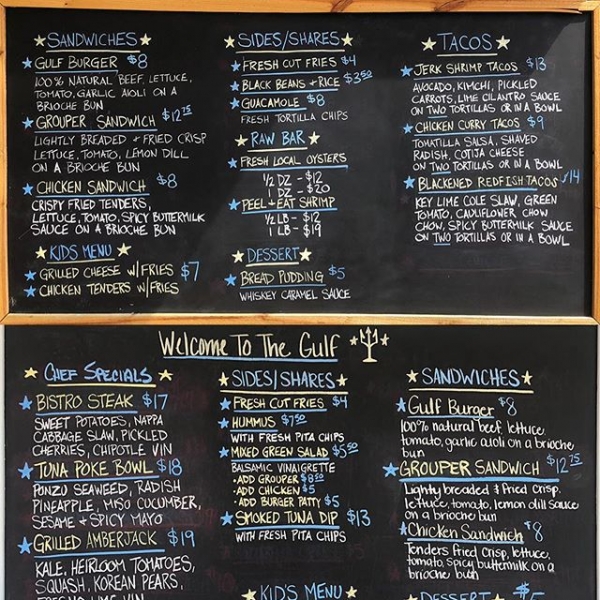 SANDWICHES
GULF BURGER $8
100% NATURAL BEEF, LETTUCE,
TOMATO, GARLIC AIOLI ON A
BRIOCHE BUN
GROUPER SANDWICH $12.75
LIGHTLY BREADED + FRIED CRISP
LETTUCE, TOMATO, LEMON DILL
ON A BRIOCHE BUN
CHICKEN SANDWICH $8
CRISPY FRIED TENDERS,
LETTUCE, TOMATO, SPICY BUTTERMILK
SAUCE ON A BRIOCHE BUN
KIDS MENU
GRILLED CHEESE W/FRIES $7
CHICKEN TENDERS W/FRIES
SIDES/SHARES
FRESH CUT FRIES $4
BLACK BEANS + RICE $3.50
GUACAMOLE $8
FRESH TORTILLA CHIPS
RAW BAR
FRESH LOCAL OYSTERS
1/2 DZ - $12
1 DZ - $20
PEEL + EAT SHRIMP
1/2 LB - $12
1 LB - $19
DESSERT
BREAD PUDDING $5
WHISKEY CARAMEL SAUCE
TACOS
JERK SHRIMP TACOS $13
AVOCADO, KIMCHI, PICKLED
CARROTS, LIME CILANTRO SAUCE
ON TWO TORTILLAS OR IN A BOWL
CHICKEN CURRY TACOS $9
TOMATILLA SALSA, SHAVED
RADISH, COTIJA CHEESE
ON TWO TORTILLAS OR IN A BOWL
BLACKENED REDFISH TACOS $14
KEY LIME COLE SLAW, GREEN
TOMATO, CAULIFLOWER CHOW
CHOW, SPICY BUTTERMILK SAUCE
ON TWO TORTILLAS OR IN A BOWL
Welcome To The Gulf
CHEF SPECIALS
BISTRO STEAK $17
SWEET POTATOES, NAPPA
CABBAGE SLAW, PICKLED
CHERRIES, CHIPOTLE VIN
TUNA POKE BOWL $18
PONZU SEAWEED, RADISH
PINEAPPLE, MISO CUCUMBER,
SESAME + SPICY MAYO
GRILLED AMBERJACK $19
KALE, HEIRLOOM TOMATOES,
SQUASH, KOREAN PEARS,
SIDES/SHARES
FRESH CUT FRIES $4
HUMMUS $7.50
WITH FRESH PITA CHIPS
MIXED GREEN SALAD $5.50
BALSAMIC VINAIGRETTE
·ADD GROUPER $8.50
·ADD CHICKEN $5
·ADD BURGER PATTY $5
SMOKED TUNA DIP $13
WITH FRESH PITA CHIPS
KID'S MENU
SANDWICHES
Gulf Burger $8
100% natural beef lettuce,
tomato, garlic aioli on a brioche
bun
GROUPER SANDWICH $12.75
Lightly breaded & Fried Crisp.
lettuce, tomato, lemon dill sauce
on a brioche bun
Chicken Sandwich $8
Tenders fried Crisp, lettuce,
tomato, Spicy buttermilk on a
brioche bun
DESSERT $5